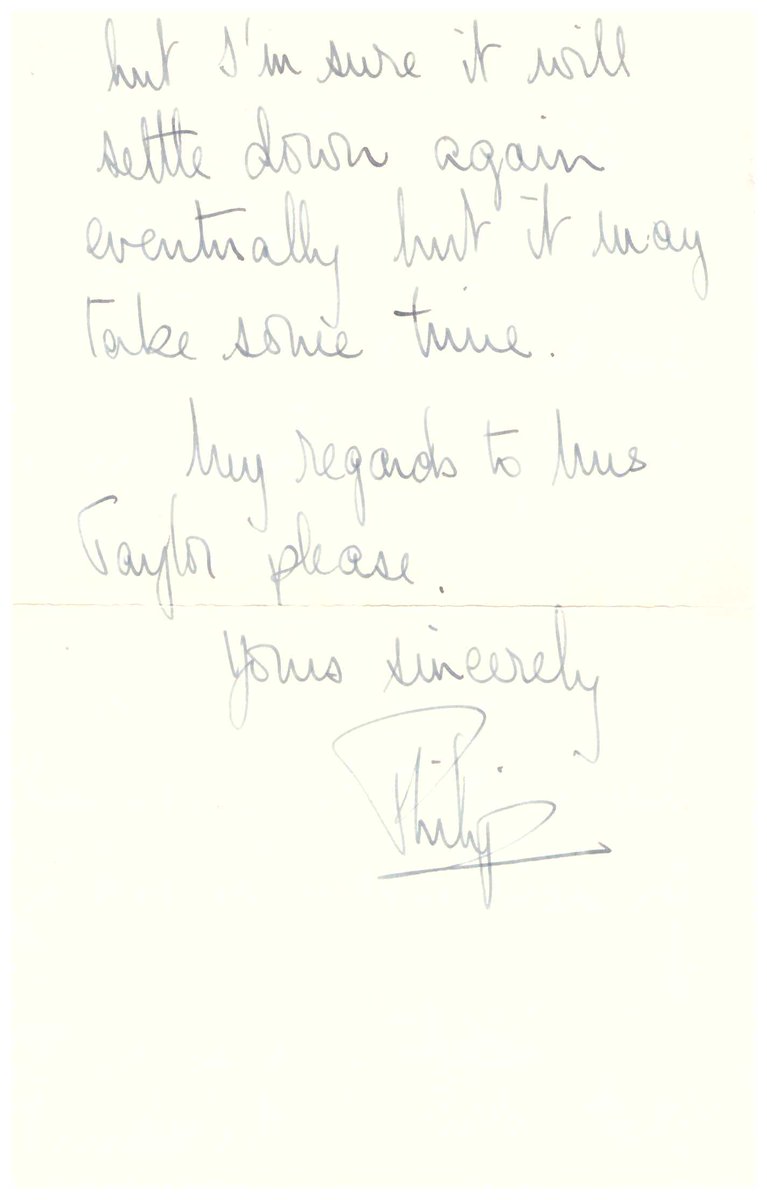 but I'm sure it will
settle down again
eventually but it may
take some time.
My regards to Mrs
Taylor please.
Yours sincerely
Philip